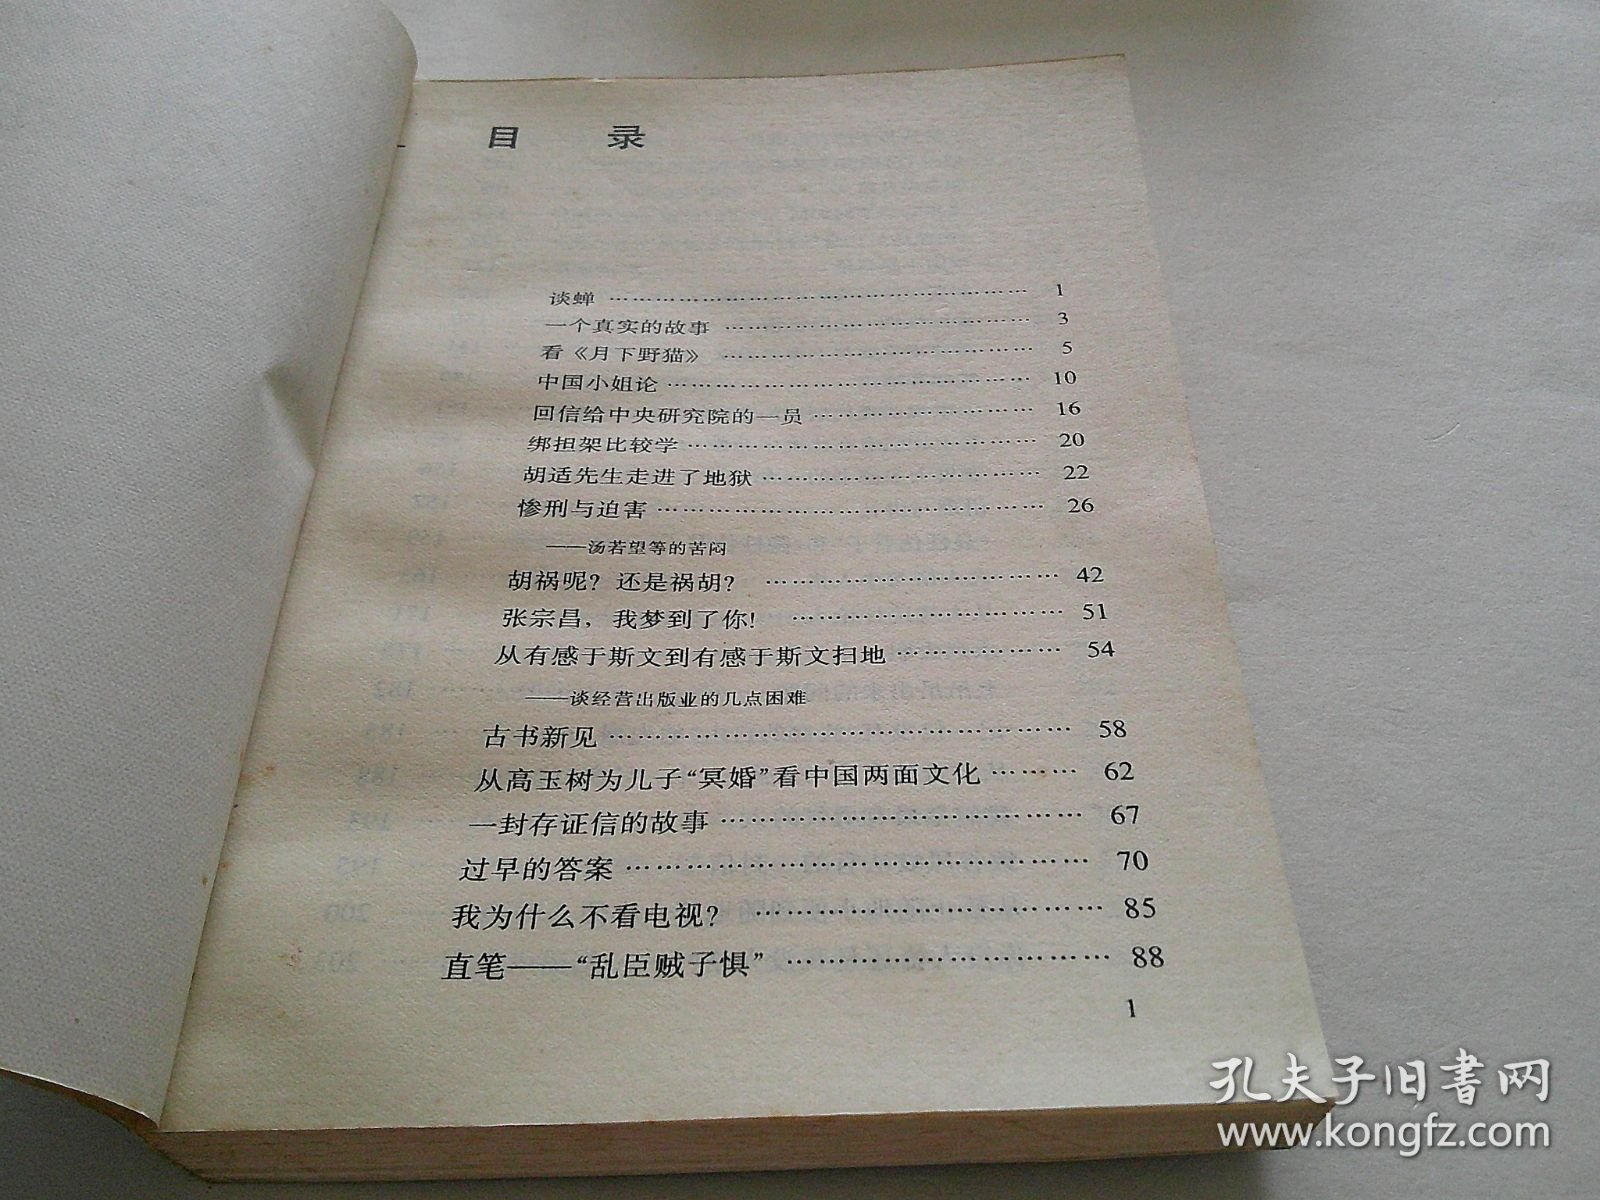 目 录
谈蝉 …………………………………………… 1
一个真实的故事 ……………………………… 3
看《月下野猫》 ……………………………… 5
中国小姐论 …………………………………… 10
回信给中央研究院的一员 …………………… 16
绑担架比较学 ………………………………… 20
胡适先生走进了地狱 ………………………… 22
惨刑与迫害 …………………………………… 26
——汤若望等的苦闷
胡祸呢？还是祸胡？ ………………………… 42
张宗昌，我梦到了你！ ……………………… 51
从有感于斯文到有感于斯文扫地 …………… 54
——谈经营出版业的几点困难
古书新见 ……………………………………… 58
从高玉树为儿子“冥婚”看中国两面文化 ……… 62
一封存证信的故事 …………………………… 67
过早的答案 …………………………………… 70
我为什么不看电视？ ………………………… 85
直笔——“乱臣贼子惧” ……………………… 88
1
孔夫子旧书网
www.kongfz.com